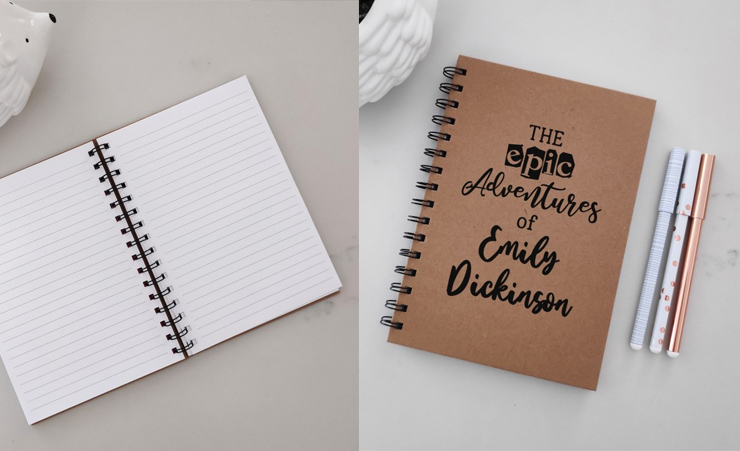 THE
epic
Adventures
of
Emily
Dickinson